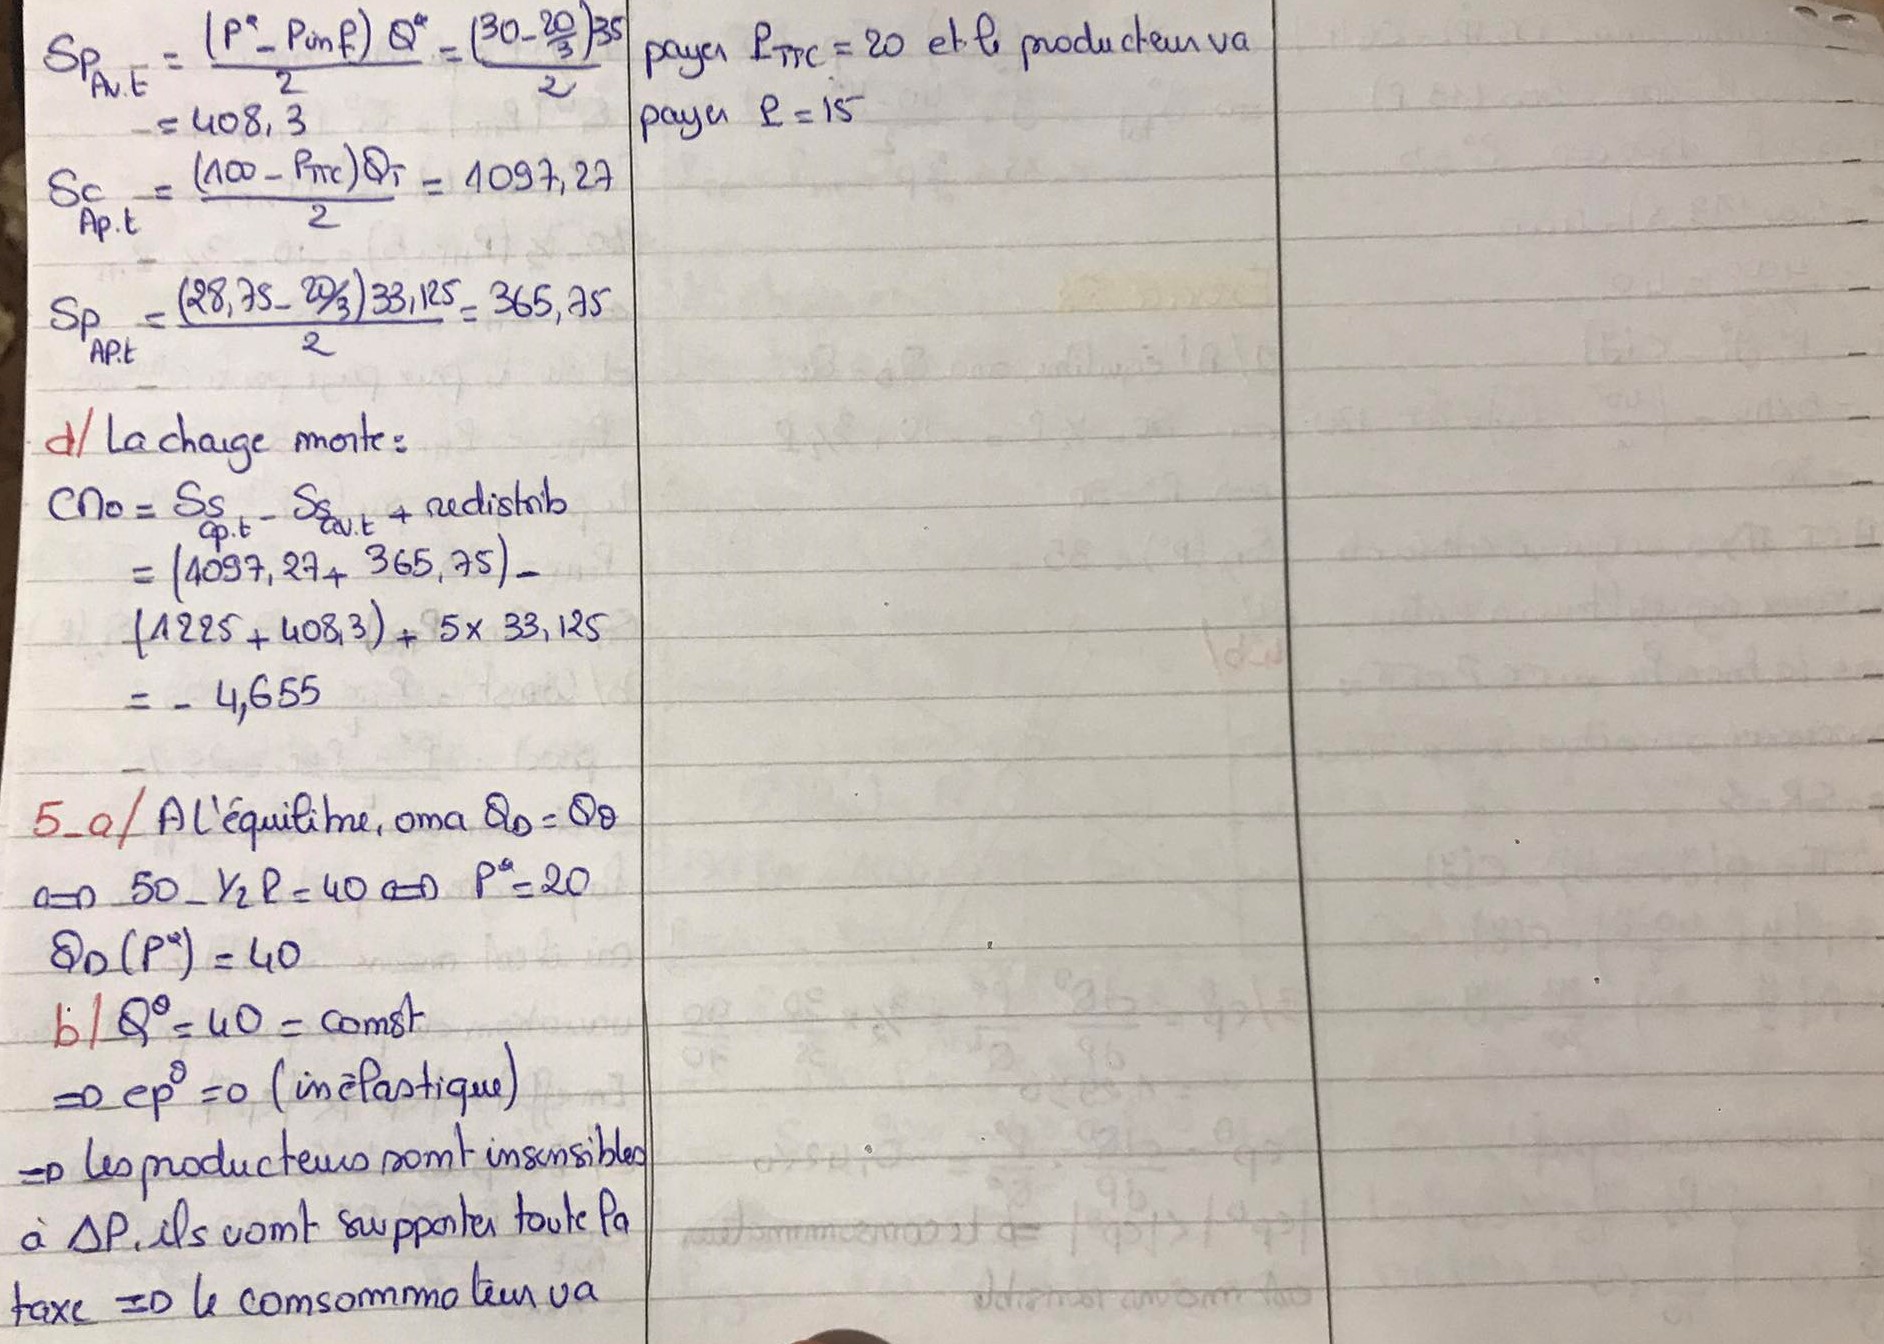 Sp Av.t = (P* - Pinf) Q* / 2 = (30 - 20/3) 35 / 2
= 408,3
Sc Ap.t = (100 - PTTC) QT / 2 = 1097,27
Sp AP.t = (28,75 - 20/3) 33,125 / 2 = 365,75
d/ La charge morte :
CMo = Ss ap.t - Ss av.t + redistrib
= (1097,27 + 365,75) -
(1225 + 408,3) + 5 x 33,125
= - 4,655
5-a/ A l'équilibre, on a QD = QO
<=> 50 - 1/2 P = 40 <=> P* = 20
QD (P*) = 40
b/ Q° = 40 = const
=> ep° = 0 (inélastique)
=> les producteurs sont insensibles
à ΔP, ils vont supporter toute la
taxe => le consommateur va
payer PTTC = 20 et le producteur va
payer P = 15